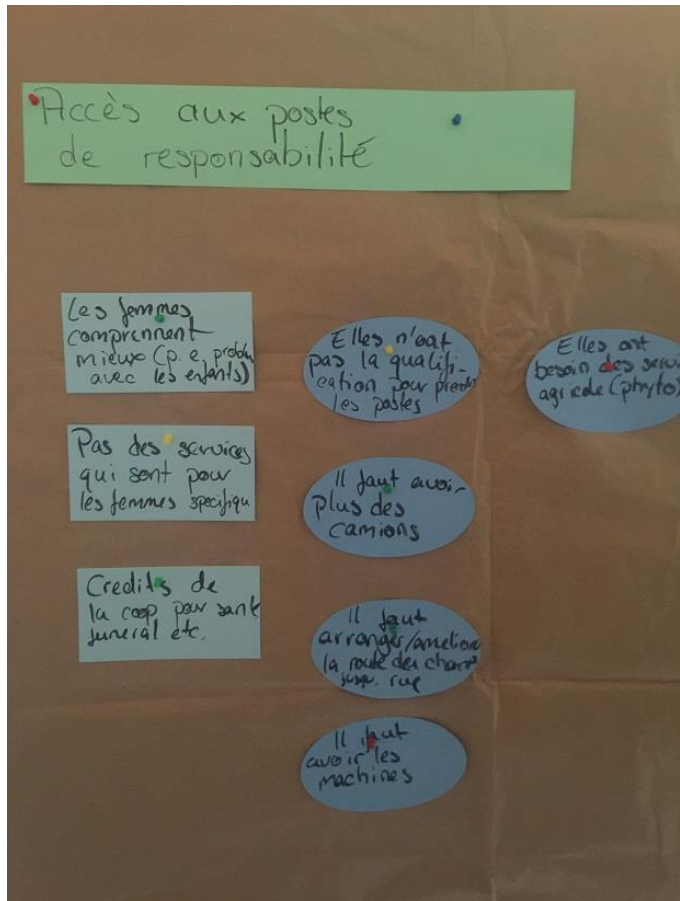 Accès aux postes
de responsabilité
Les femmes
comprennent
mieux (p. e. problm
avec les enfants)
Pas des services
qui sont pour
les femmes specifiqu
Credits de
la coop pour sant
funeral etc.
Elles n'ont
pas la qualifi-
cation pour prendr
les postes
Il faut avoir
plus des
camions
Il faut
arranger/ameliore
la route des champs
jusqu. rue
Il faut
avoir les
machines
Elles ont
besoin des servi
agricole (phyto)